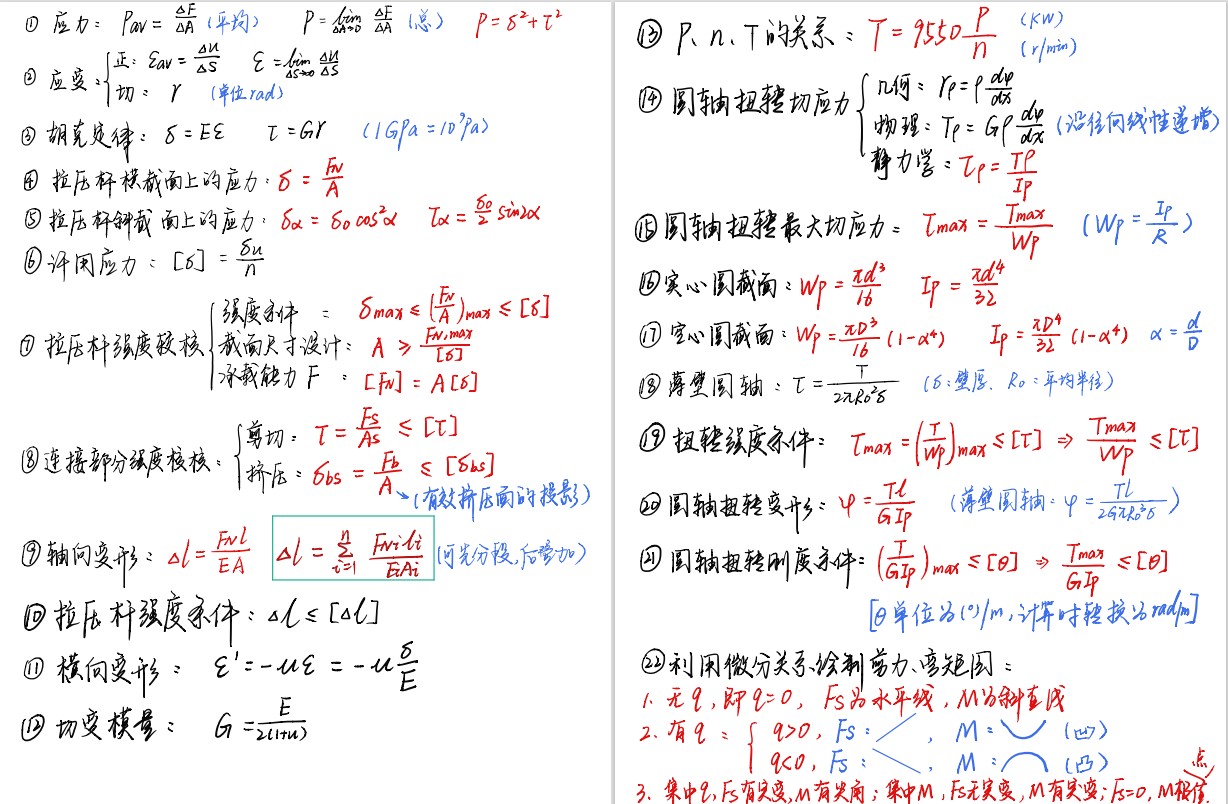 ① 应力: Pav = ΔF/ΔA (平均) P = lim ΔA→0 ΔF/ΔA (总) P = δ² + τ²
② 应变: { 正: εav = Δu/ΔS ε = lim ΔS→0 Δu/ΔS
切: γ (单位rad)
③ 胡克定律: δ = Eε τ = Gγ (1GPa = 10⁹Pa)
④ 拉压杆横截面上的应力: δ = FN/A
⑤ 拉压杆斜截面上的应力: δα = δ0 cos²α τα = δ0/2 sin2α
⑥ 许用应力: [δ] = δu/n
⑦ 拉压杆强度较核 { 强度条件: δmax ≤ (FN/A)max ≤ [δ]
截面尺寸设计: A ≥ FN,max/[δ]
承载能力F: [FN] = A[δ]
⑧ 连接部分强度校核: { 剪切: τ = Fs/As ≤ [τ]
挤压: δbs = Fb/A ≤ [δbs]
(有效挤压面的投影)
⑨ 轴向变形: Δl = FNl/EA Δl = Σ(i=1→n) FNili/EiAi (可先分段,后叠加)
⑩ 拉压杆强度条件: Δl ≤ [Δl]
⑪ 横向变形: ε' = -με = -μ δ/E
⑫ 切变模量: G = E/2(1+μ)
⑬ P、n、T的关系: T = 9550 P/n (KW) (r/min)
⑭ 圆轴扭转切应力 { 几何: γρ = ρ dφ/dx
物理: τρ = Gρ dφ/dx (沿径向线性递增)
静力学: τρ = Tρ/Ip
⑮ 圆轴扭转最大切应力: τmax = Tmax/Wp (Wp = Ip/R)
⑯ 实心圆截面: Wp = πd³/16 Ip = πd⁴/32
⑰ 空心圆截面: Wp = πD³/16 (1-α⁴) Ip = πD⁴/32 (1-α⁴) α = d/D
⑱ 薄壁圆轴: τ = T/2πR0²δ (δ:壁厚、R0:平均半径)
⑲ 扭转强度条件: τmax = (T/Wp)max ≤ [τ] ⇒ Tmax/Wp ≤ [τ]
⑳ 圆轴扭转变形: φ = Tl/GIp (薄壁圆轴: φ = Tl/2GπR0³δ)
㉑ 圆轴扭转刚度条件: (T/GIp)max ≤ [θ] ⇒ Tmax/GIp ≤ [θ]
[θ单位为(°)/m,计算时转换为rad/m]
㉒ 利用微分关系绘制剪力、弯矩图:
1. 无q,即q=0, Fs为水平线,M为斜直线
2. 有q: { q>0, Fs: ╱, M: ⌣ (凹)
q<0, Fs: ╲, M: ⌢ (凸)
3. 集中q,Fs有突变,M有尖角;集中M,Fs无突变,M有突变;Fs=0,M极值点